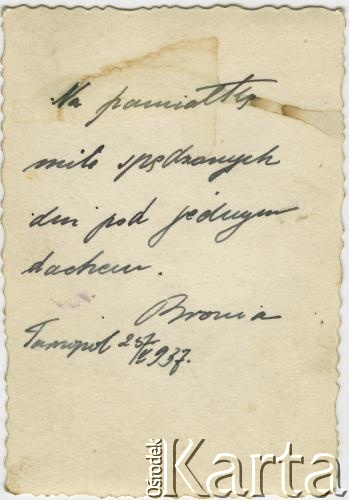 Na pamiątkę
mile spędzonych
dni pod jednym
dachem.
Bronia
Tarnopol
937.
Ośrodek
Karta